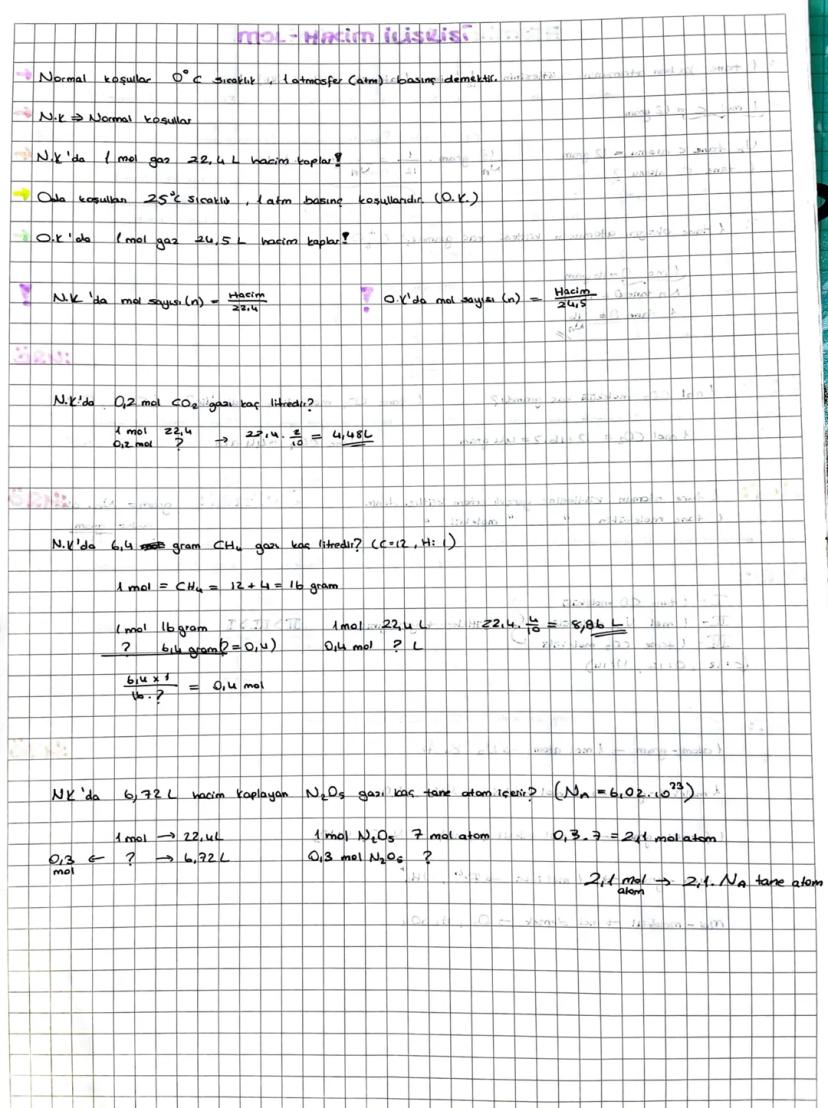 mol - Hacim ilişkisi
Normal koşullar 0°C sıcaklık, 1 atmosfer (atm) basınç demektir.
N.K ⇒ Normal koşullar
N.K'da 1 mol gaz 22,4 L hacim kaplar!
Oda koşulları 25°C sıcaklık, 1 atm basınç koşullarıdır. (O.K.)
O.K'da 1 mol gaz 24,5 L hacim kaplar!
! N.K'da mol sayısı (n) = Hacim / 22,4 ! O.K'da mol sayısı (n) = Hacim / 24,5
ÖRN:
N.K'da 0,2 mol CO₂ gazı kaç litredir?
1 mol 22,4
0,2 mol ? → 22,4 . 2/10 = 4,48L
N.K'da 6,4 gram CH₄ gazı kaç litredir? (C=12, H: 1)
1 mol = CH₄ = 12 + 4 = 16 gram
1 mol 16 gram 1 mol 22,4 L 22,4 . 4/10 = 8,96 L
? 6,4 gram (? = 0,4) 0,4 mol ? L
6,4 x 1 / 16 . ? = 0,4 mol
NK'da 6,72 L hacim kaplayan N₂O₅ gazı kaç tane atom içerir? (NA = 6,02.10²³)
1 mol → 22,4L 1 mol N₂O₅ 7 mol atom 0,3 . 7 = 2,1 mol atom
0,3 mol ← ? → 6,72 L 0,3 mol N₂O₅ ?
2,1 mol atom → 2,1 . NA tane atom